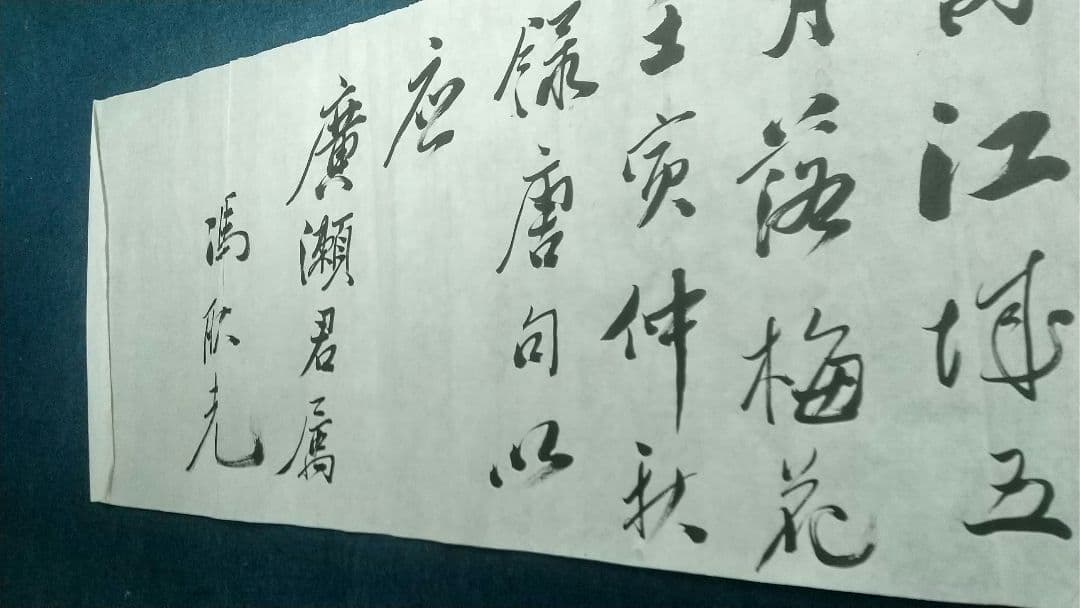 江城五
月落梅花
壬寅仲秋
録唐句以
应
廣瀬君属
馮耿光